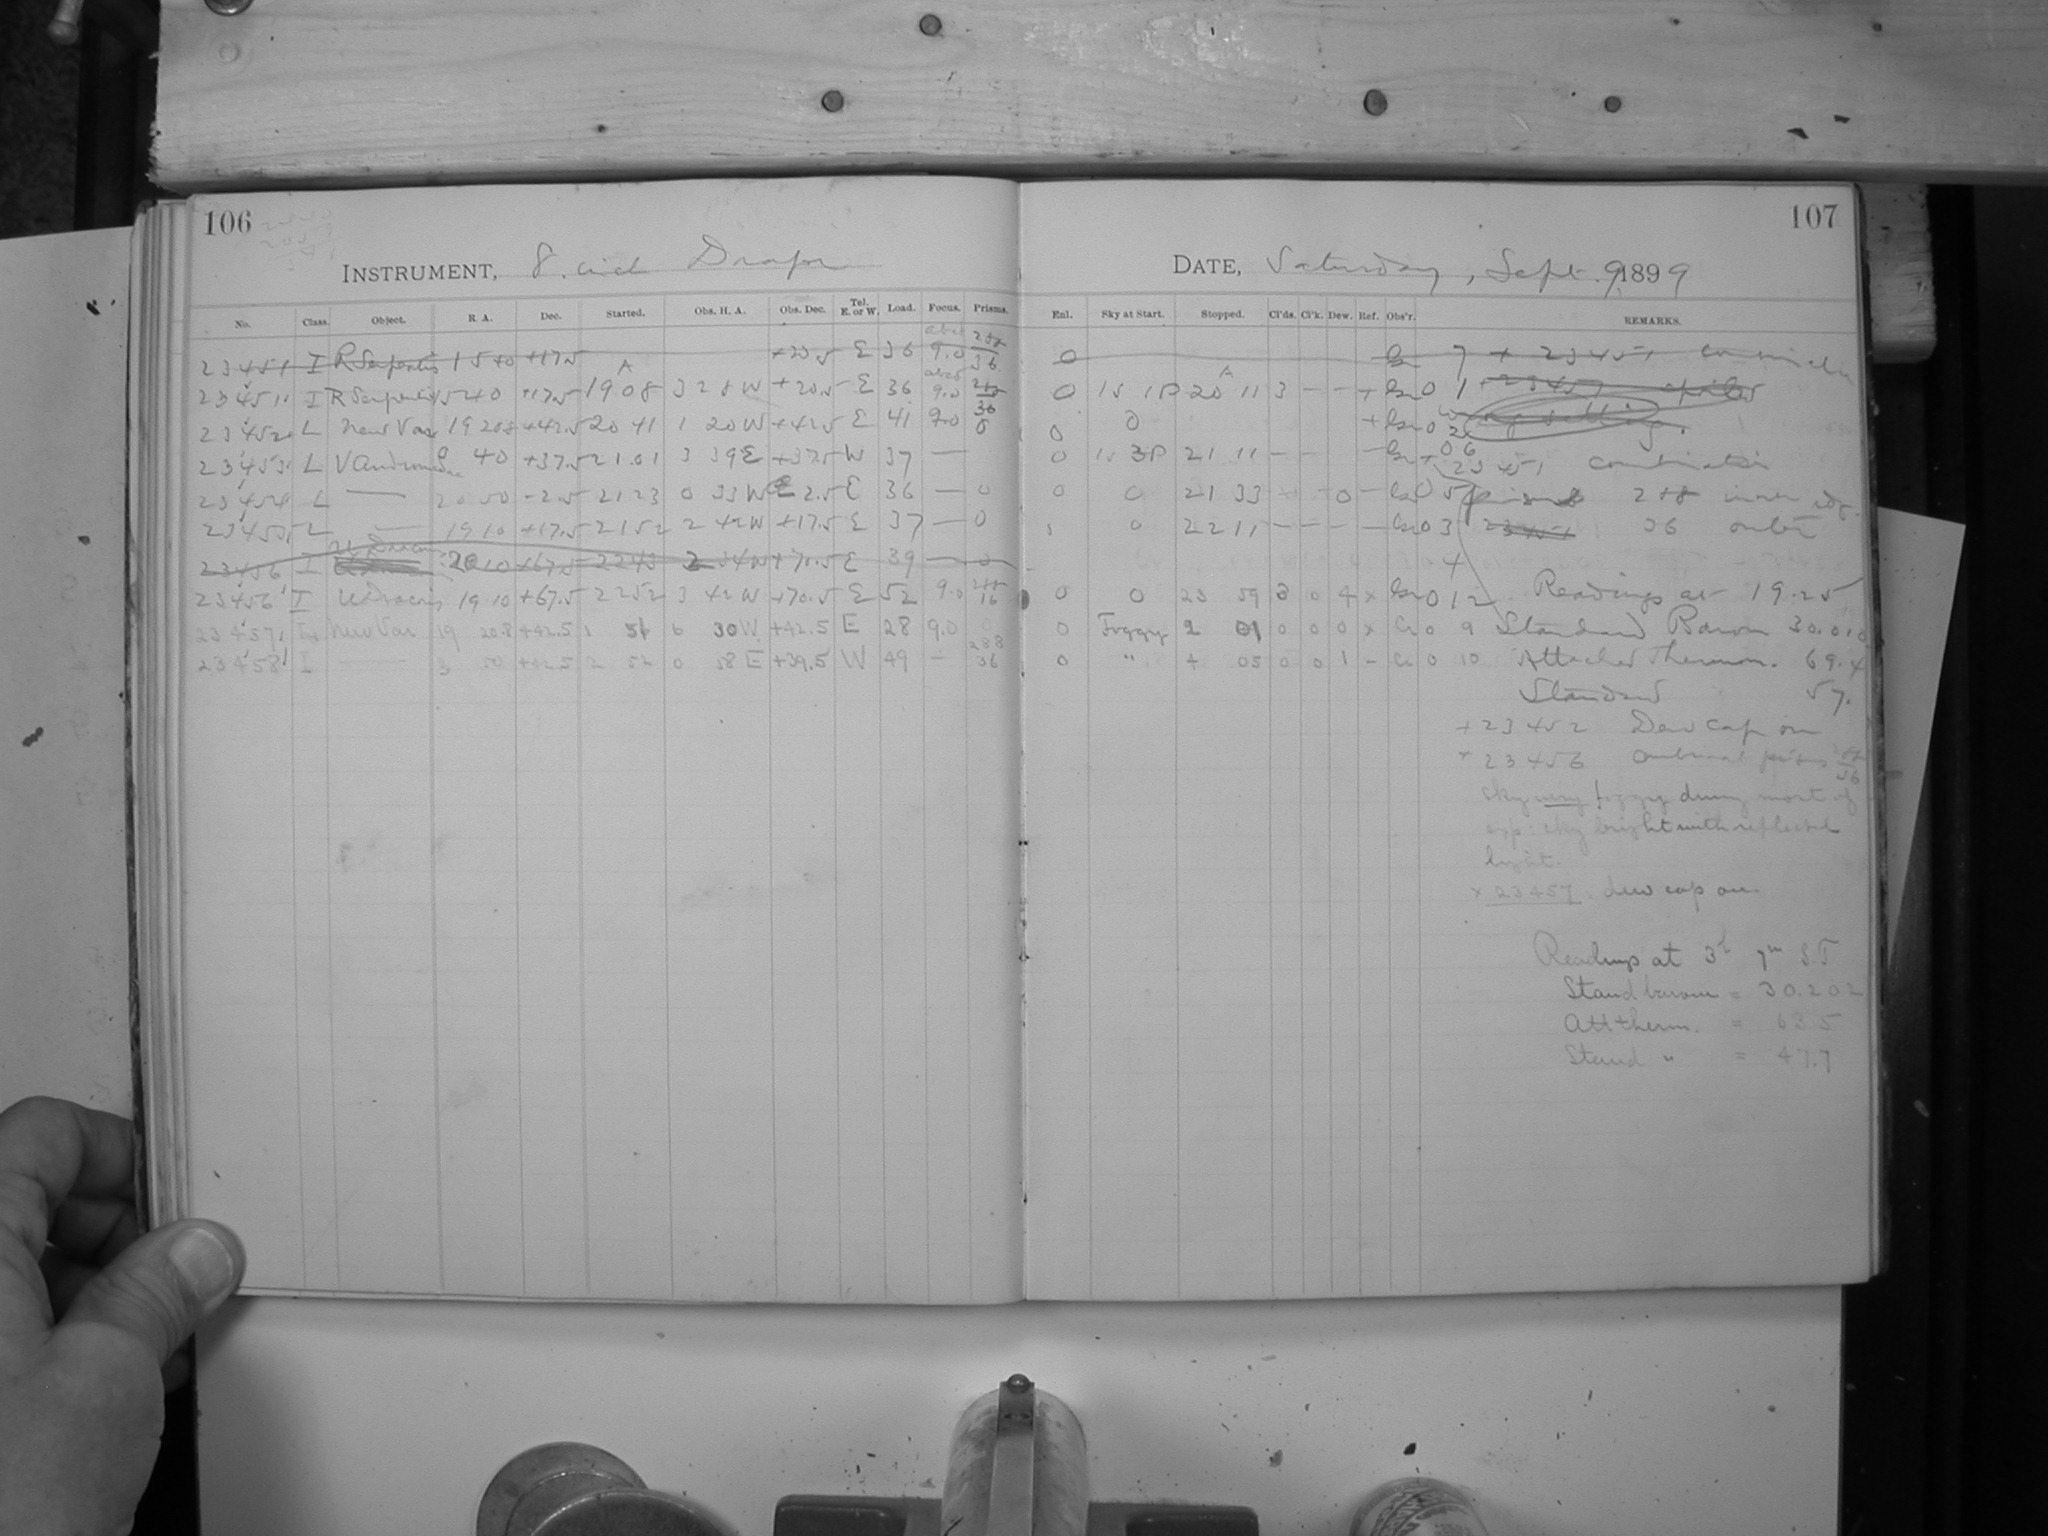 106
INSTRUMENT, 8. inch Draper
No. Class. Object. R. A. Dec. Started. Obs. H. A. Obs. Dec. Tel. E. or W. Load. Focus. Prisms.
23451 I R Serpentis 15 40 +17.5 +20.5 E 36 9.0 36
23451 I R Serpentis 15 40 +17.5 19 08 3 28 W +20.5 E 36 9.0 36
23452 L New Var 19 20.8 +42.5 20 41 1 20 W +42.5 E 41 9.0 0
23453 L V Andromedae 0 40 +37.5 21.01 3 39 E +37.5 W 37 —
23454 L — 20 50 -2.5 21 23 0 33 W 2.5 E 36 — 0
23455 L — 19 10 +17.5 21 52 2 42 W +17.5 E 37 — 0
23456 I 20 10 +67.5 22 43 2 34 W +70.5 E 39 — 0
23456 I U Draconis 19 10 +67.5 22 52 3 42 W +70.5 E 52 9.0
23457 L New Var 19 20.8 +42.5 1 51 6 30 W +42.5 E 28 9.0 0
23458 I — 3 50 +42.5 2 52 0 58 E +39.5 W 49 - 288 36
107
DATE, Saturday, Sept. 9, 1899
Enl. Sky at Start. Stopped. Cl'ds. Cl'k. Dew. Ref. Obs'r. REMARKS.
0 7 + 23451
0 20 11 3 - - + 0 1 + 23457
0 0 + 0 2 wrong setting.
0 21 11 - - - 06
23451 combination
0 0 21 33 0 - 05 prisms 288 inner edge.
0 22 11 - - - - 03 23451 36 outer
0 0 23 59 3 0 4 x 0 12 Readings at 19.25
0 Foggy 2 01 0 0 0 x 0 9 Standard Barom 30.010
0 " 4 05 0 0 1 - 0 10 Attached Thermom. 69.4
Standard 57.
+ 23452 Dew cap on
+ 23456 combined prisms
sky very foggy during most of
exp: sky bright with reflected
light.
x 23457. dew cap on.
Readings at 3h 7m S.T
Stand barom = 30.202
Att therm. = 63.5
Stand " = 47.7